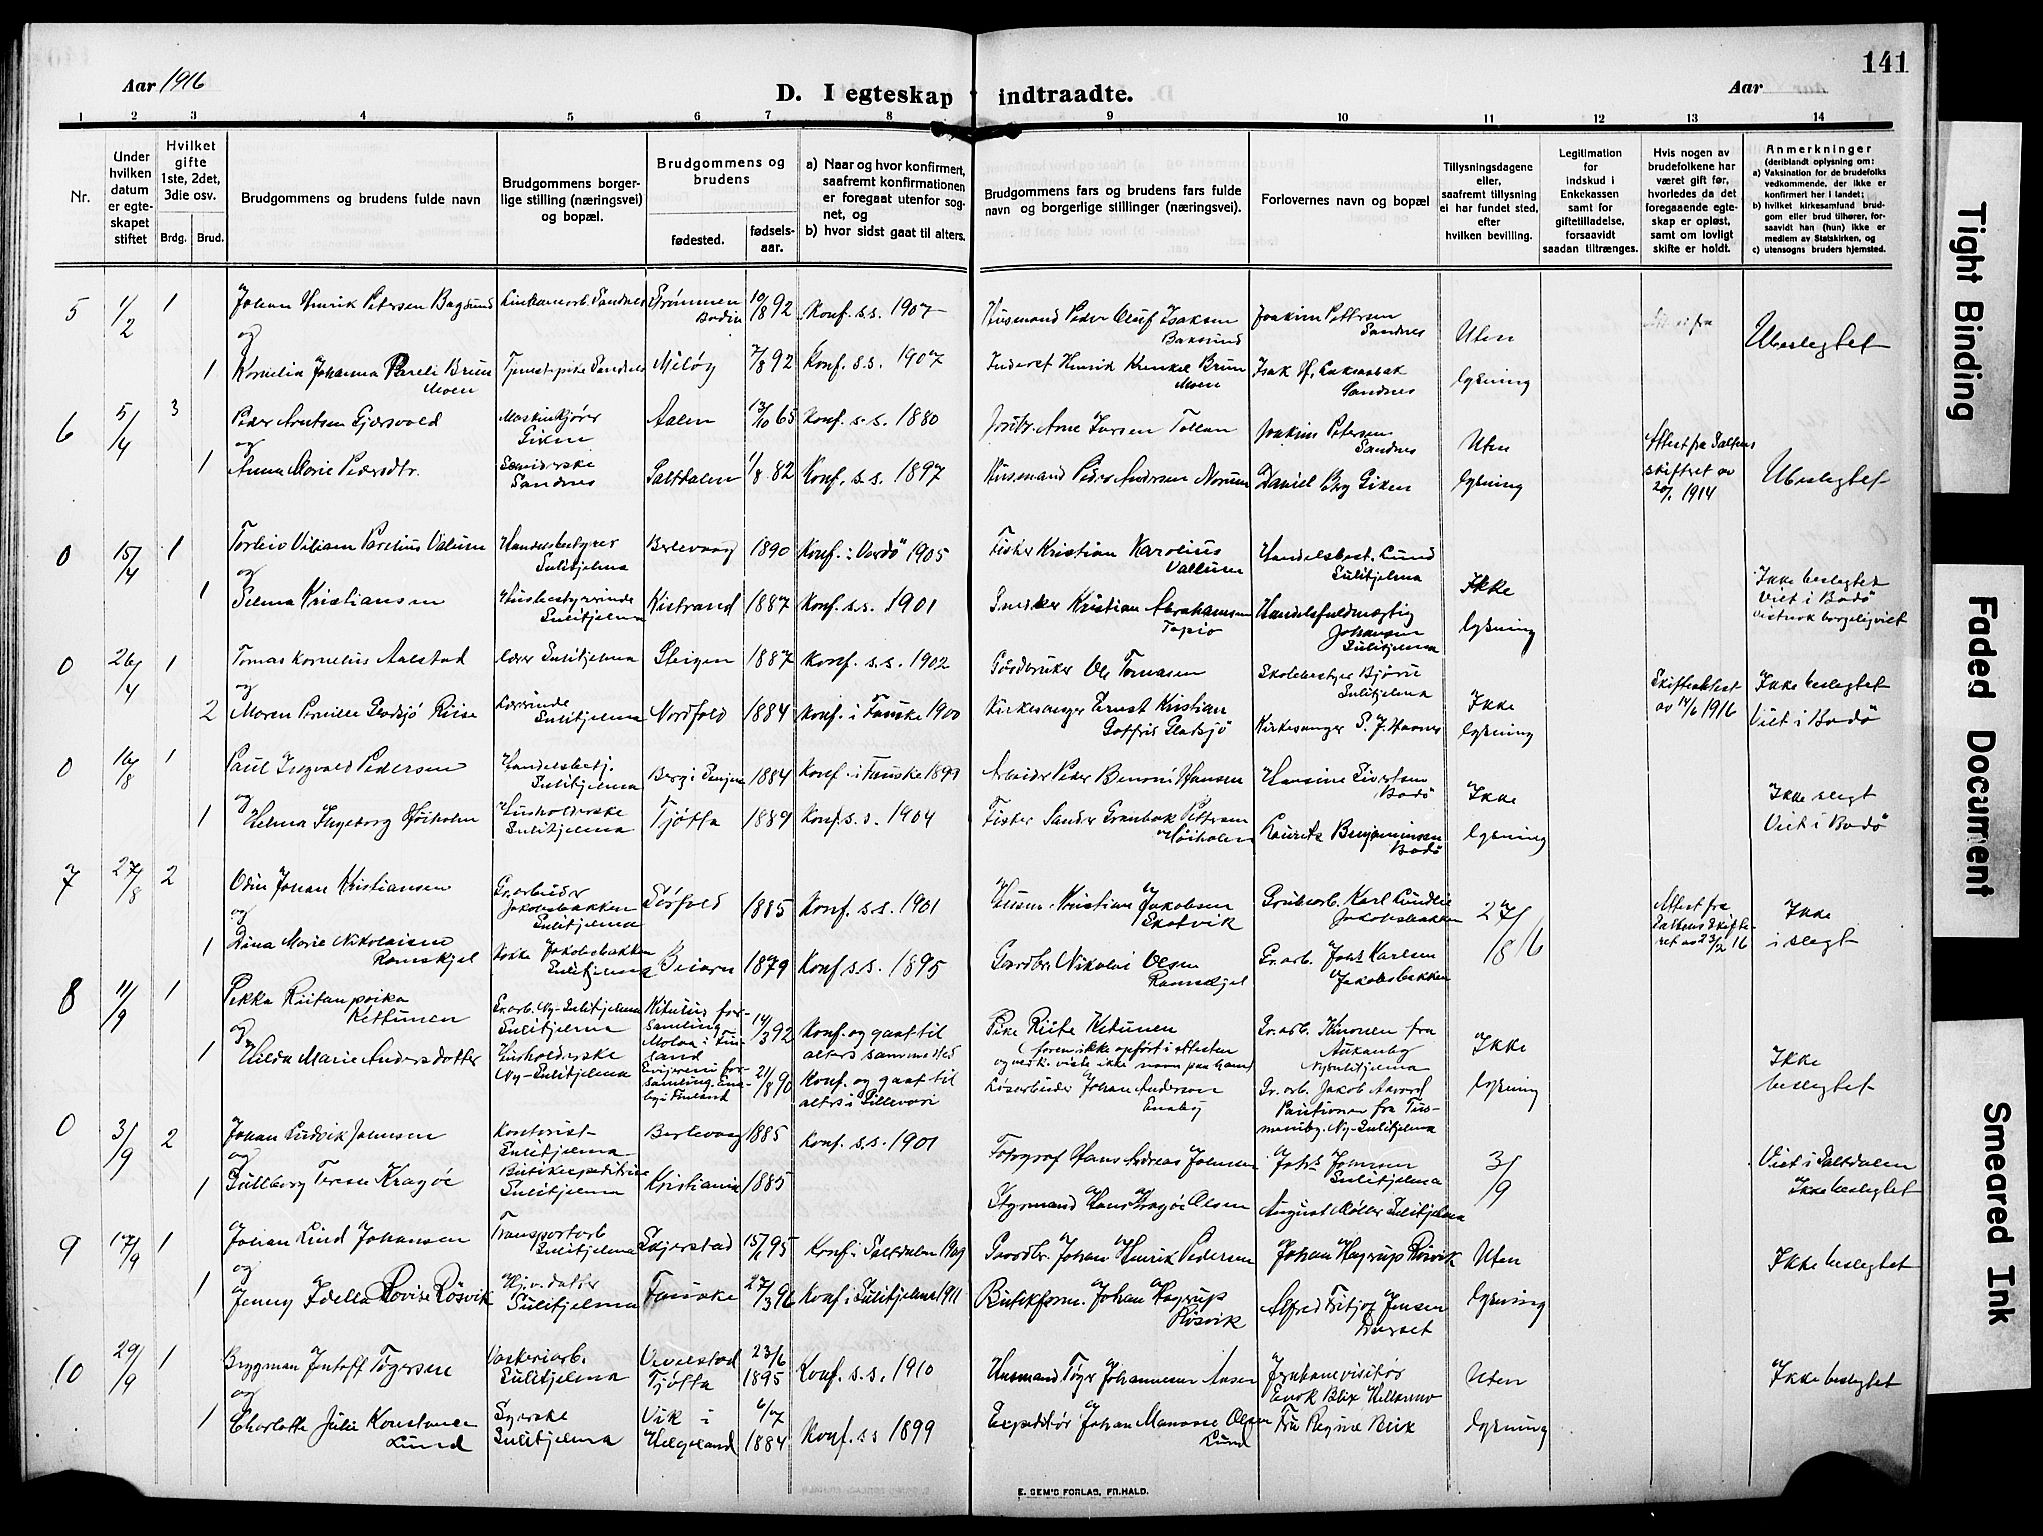 141
Aar 1916
D. I egteskap indtraadte.
Aar
1 2 3 4 5 6 7 8 9 10 11 12 13 14
Nr.
Under hvilken datum er egteskapet stiftet
Hvilket gifte 1ste, 2det, 3die osv.
Brdg. Brud.
Brudgommens og brudens fulde navn
Brudgommens borgerlige stilling (næringsvei) og bopæl.
Brudgommens og brudens
fødested.
fødselsaar.
a) Naar og hvor konfirmert, saafremt konfirmationen er foregaat utenfor sognet, og
b) hvor sidst gaat til alters.
Brudgommens fars og brudens fars fulde navn og borgerlige stillinger (næringsvei).
Forlovernes navn og bopæl
Tillysningsdagene eller, saafremt tillysning ei har fundet sted, efter hvilken bevilling.
Legitimation for indskud i Enkekassen samt for giftetilladelse, forsaavidt saadan tiltrænges.
Hvis nogen av brudefolkene har været gift før, hvorledes da det foregaaende egteskap er opløst, samt om lovligt skifte er holdt.
Anmerkninger
(deriblandt oplysning om:
a) Vaksination for de brudefolks vedkommende, der ikke er konfirmert her i landet;
b) hvilket kirkesamfund brudgom eller brud tilhører, forsaavidt han (hun) ikke er medlem av Statskirken, og
c) utensogns bruders hjemsted.
5 1/2 1 Johan Henrik Petersen Bagsund Sandnes Strømmen Bodin 10/8 92 Konf. s.s. 1907 Husmand Peder Oluf Isaksen Joakim Pettersen Sandnes Uten Ubeslegtet
og
1 Kornelia Johanna Pareli Bruun Moen Tjenestepike Sandnes Meløy 7/8 92 Konf. s.s. 1907 Henrik Bruun Moen Isak Sandnes lysning
6 5/4 3 Peder Arntsen Gjersvold Maskinkjører Giken Aalen 13/10 65 Konf. s.s. 1880 Arne Larsen Joakim Petersen Sandnes Uten Attest fra Saltens skifteret av 20/1 1914 Ubeslegtet
og
1 Anna Marie Pedersdtr. Sandnes Saltdalen 1/8 82 Konf. s.s. 1897 Husmand Peder Andersen Daniel Berg Giken lysning
0 15/4 1 Torleiv Viliam Parelius Valum Handelsbestyrer Sulitjelma Berlevaag 1890 Konf. i Vardö 1905 Fisker Kristian Karolius Vallum Handelsbest. Lund Sulitjelma Ikke Ikke beslegtet
og
1 Selma Kristiansen Husbestyrerinde Sulitjelma Kistrand 1887 Konf. s.s. 1901 Snedker Kristian Abrahamsen Handelsfuldmægtig Johansen Sulitjelma lysning Viet i Bodø
0 26/4 1 Tomas Kornelius Aalstad Lærer Sulitjelma Steigen 1887 Konf. s.s. 1902 Gårdbruker Ole Tomasen Skolebestyrer Bjørn Sulitjelma Ikke Skifteattest av 14/6 1916 Ikke beslegtet
og
2 Maren Pernille Gladsjö Riise Lærerinde Sulitjelma Nordfold 1884 Konf. i Fauske 1900 Kirkesanger Ernst Kristian Gotfris Gladsjö Kirkesanger S. J. lysning Viet i Bodö
0 16/8 1 Paul Ingvald Pedersen Handelsbetj. Sulitjelma Berg i Senjen 1884 Konf. i Fauske 1899 Arbeider Peder Benoni Hansen Hansine Sivertsen Bodö Ikke Ikke slegt
og
1 Helma Ingeborg Høiholm Husholderske Sulitjelma Tjøtta 1889 Konf. s.s. 1904 Fisker Sander Pettersen Høiholm Laurits Benjaminsen Bodö lysning Viet i Bodö
7 27/8 2 Odin Johan Kristiansen Gr.arbeider Jakobsbakken Sulitjelma Sörfold 1885 Konf. s.s. 1901 Husm. Kristian Jakobsen Skotvik Grubearb. Karl Lundli Jakobsbakken 27/8 16 Attest fra Saltens Skifteret av 23/2 16 Ikke
og
1 Dina Marie Nikolaisen Ramskjel Kokke Jakobsbakken Sulitjelma Beiarn 1879 Konf. s.s. 1895 Gaardbr. Nikolai Olsen Ramskjel Gr.arb. Johs Karlsen Jakobsbakken i slegt
8 11/9 1 Pekka Kettunen Gr.arb. Ny-Sulitjelma Sulitjelma forsamling i Finland 14/3 92 Konf. og gaat til alters sammested Gr.arb. fra Nysulitjelma Ikke Ikke
og
1 Hilda Marie Andersdotter Husholderske Ny-Sulitjelma forsamling i Finland 21/8 90 Konf. og gaat til alters i Løsarbeider Johan Anderson Eneby Gr.arb. Jakob fra Ny-Sulitjelma lysning beslegtet
0 3/9 2 Johan Ludvik Johnsen Kontorist Sulitjelma Berlevaag 1885 Konf. s.s. 1901 Fotograf Hans Andreas Johnsen Johs Johnsen Sulitjelma 3/9 Viet i Saltdalen
og
1 Gullborg Terese Kragöe Sulitjelma Kristiania 1885 Styrmand Hans Kragöe Olsen August Möller Sulitjelma Ikke beslegtet
9 17/9 1 Johan Lind Johansen Transportarb. Sulitjelma Skjerstad 15/1 95 Konf. i Saltdalen 1909 Gaardbr. Johan Henrik Pedersen Johan Hagrup Rösvik Uten Ikke beslegtet
og
1 Jenny Idella Lovise Rösvik Hjv. datter Sulitjelma Fauske 27/3 96 Konf. i Sulitjelma 1911 Butikform. Johan Hagrup Rösvik Alfred Fritjof Jensen lysning
10 29/9 1 Brygman Jentoft Tøgersen Vaskeriarb. Sulitjelma Vevelstad Tjøtta 23/6 1895 Konf. s.s. 1910 Husmand Tøger Johannesen Jernbanevisitør Enok Blix Uten Ikke beslegtet
og
1 Charlotte Julie Konstance Lund Syerske Sulitjelma Vik i Helgeland 6/7 1884 Konf. s.s 1899 Expeditör Johan Manasse Olsen Lund Fru Regine Blix lysning
E. SEM'S FORLAG, FR.HALD.
Tight Binding
Faded Document
Smeared Ink